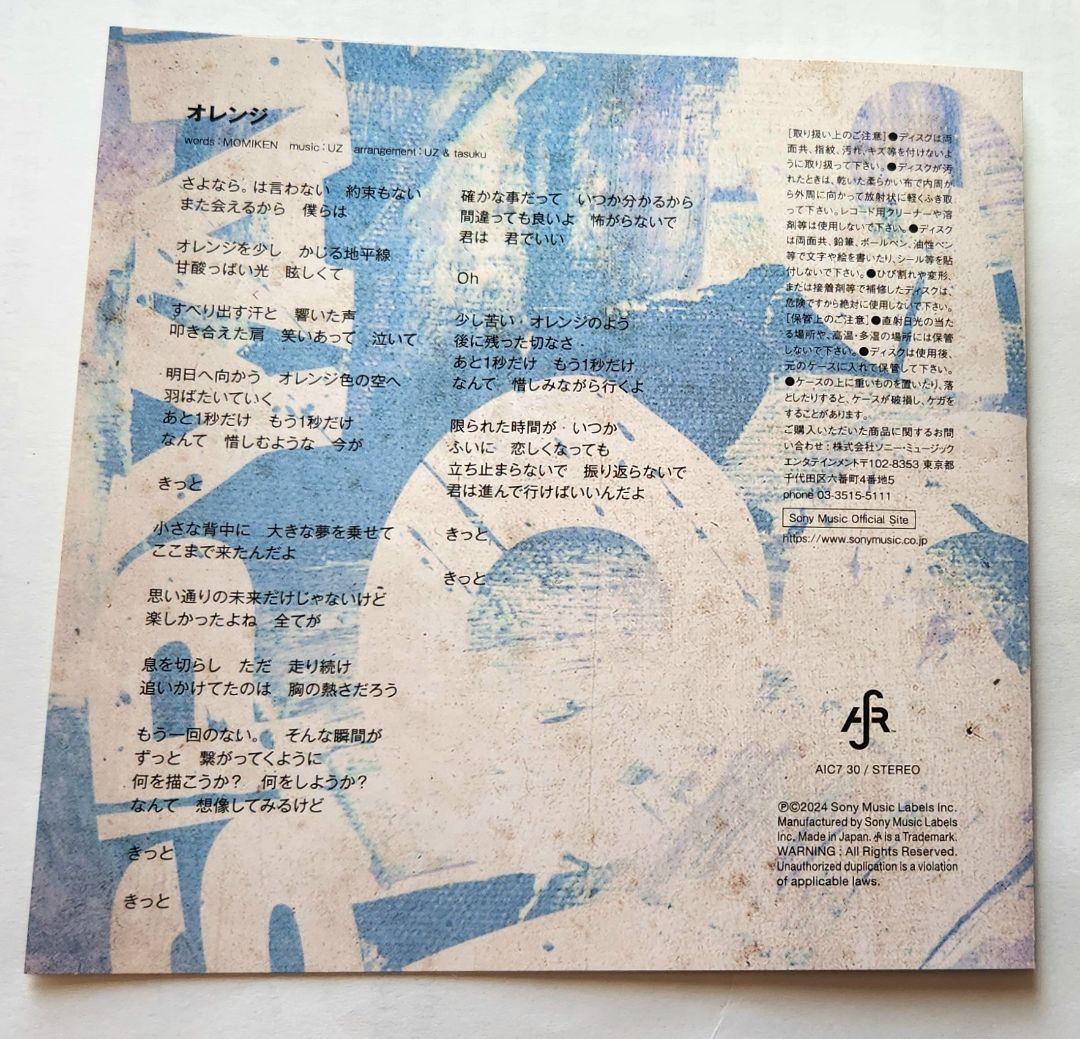 オレンジ
words：MOMIKEN　music：UZ　arrangement：UZ & tasuku
さよなら。は言わない　約束もない
また会えるから　僕らは
オレンジを少し　かじる地平線
甘酸っぱい光　眩しくて
すべり出す汗と　響いた声
叩き合えた肩　笑いあって　泣いて
明日へ向かう　オレンジ色の空へ
羽ばたいていく
あと1秒だけ　もう1秒だけ
なんて　惜しむような　今が
きっと
小さな背中に　大きな夢を乗せて
ここまで来たんだよ
思い通りの未来だけじゃないけど
楽しかったよね　全てが
息を切らし　ただ　走り続け
追いかけてたのは　胸の熱さだろう
もう一回のない。　そんな瞬間が
ずっと　繋がってくように
何を描こうか？　何をしようか？
なんて　想像してみるけど
きっと
きっと
確かな事だって　いつか分かるから
間違っても良いよ　怖がらないで
君は　君でいい
Oh
少し苦い オレンジのよう
後に残った切なさ
あと1秒だけ　もう1秒だけ
なんて　惜しみながら行くよ
限られた時間が　いつか
ふいに　恋しくなっても
立ち止まらないで　振り返らないで
君は進んで行けばいいんだよ
きっと
きっと
［取り扱い上のご注意］●ディスクは両
面共、指紋、汚れ、キズ等を付けないよ
うに取り扱って下さい。●ディスクが汚
れたときは、乾いた柔らかい布で内周か
ら外周に向かって放射状に軽くふき取
って下さい。レコード用クリーナーや溶
剤等は使用しないで下さい。●ディスク
は両面共、鉛筆、ボールペン、油性ペン
等で文字や絵を書いたり、シール等を貼
付しないで下さい。●ひび割れや変形、
または接着剤等で補修したディスクは、
危険ですから絶対に使用しないで下さい。
［保管上のご注意］●直射日光の当た
る場所や、高温・多湿の場所には保管
しないで下さい。●ディスクは使用後、
元のケースに入れて保管して下さい。
●ケースの上に重いものを置いたり、落
としたりすると、ケースが破損し、ケガを
することがあります。
ご購入いただいた商品に関するお問
い合わせ：株式会社ソニー・ミュージック
エンタテインメント〒102-8353 東京都
千代田区六番町4番地5
phone 03-3515-5111
Sony Music Official Site
https://www.sonymusic.co.jp
AIC7 30 / STEREO
℗©2024 Sony Music Labels Inc.
Manufactured by Sony Music Labels
Inc. Made in Japan. is a Trademark.
WARNING : All Rights Reserved.
Unauthorized duplication is a violation
of applicable laws.